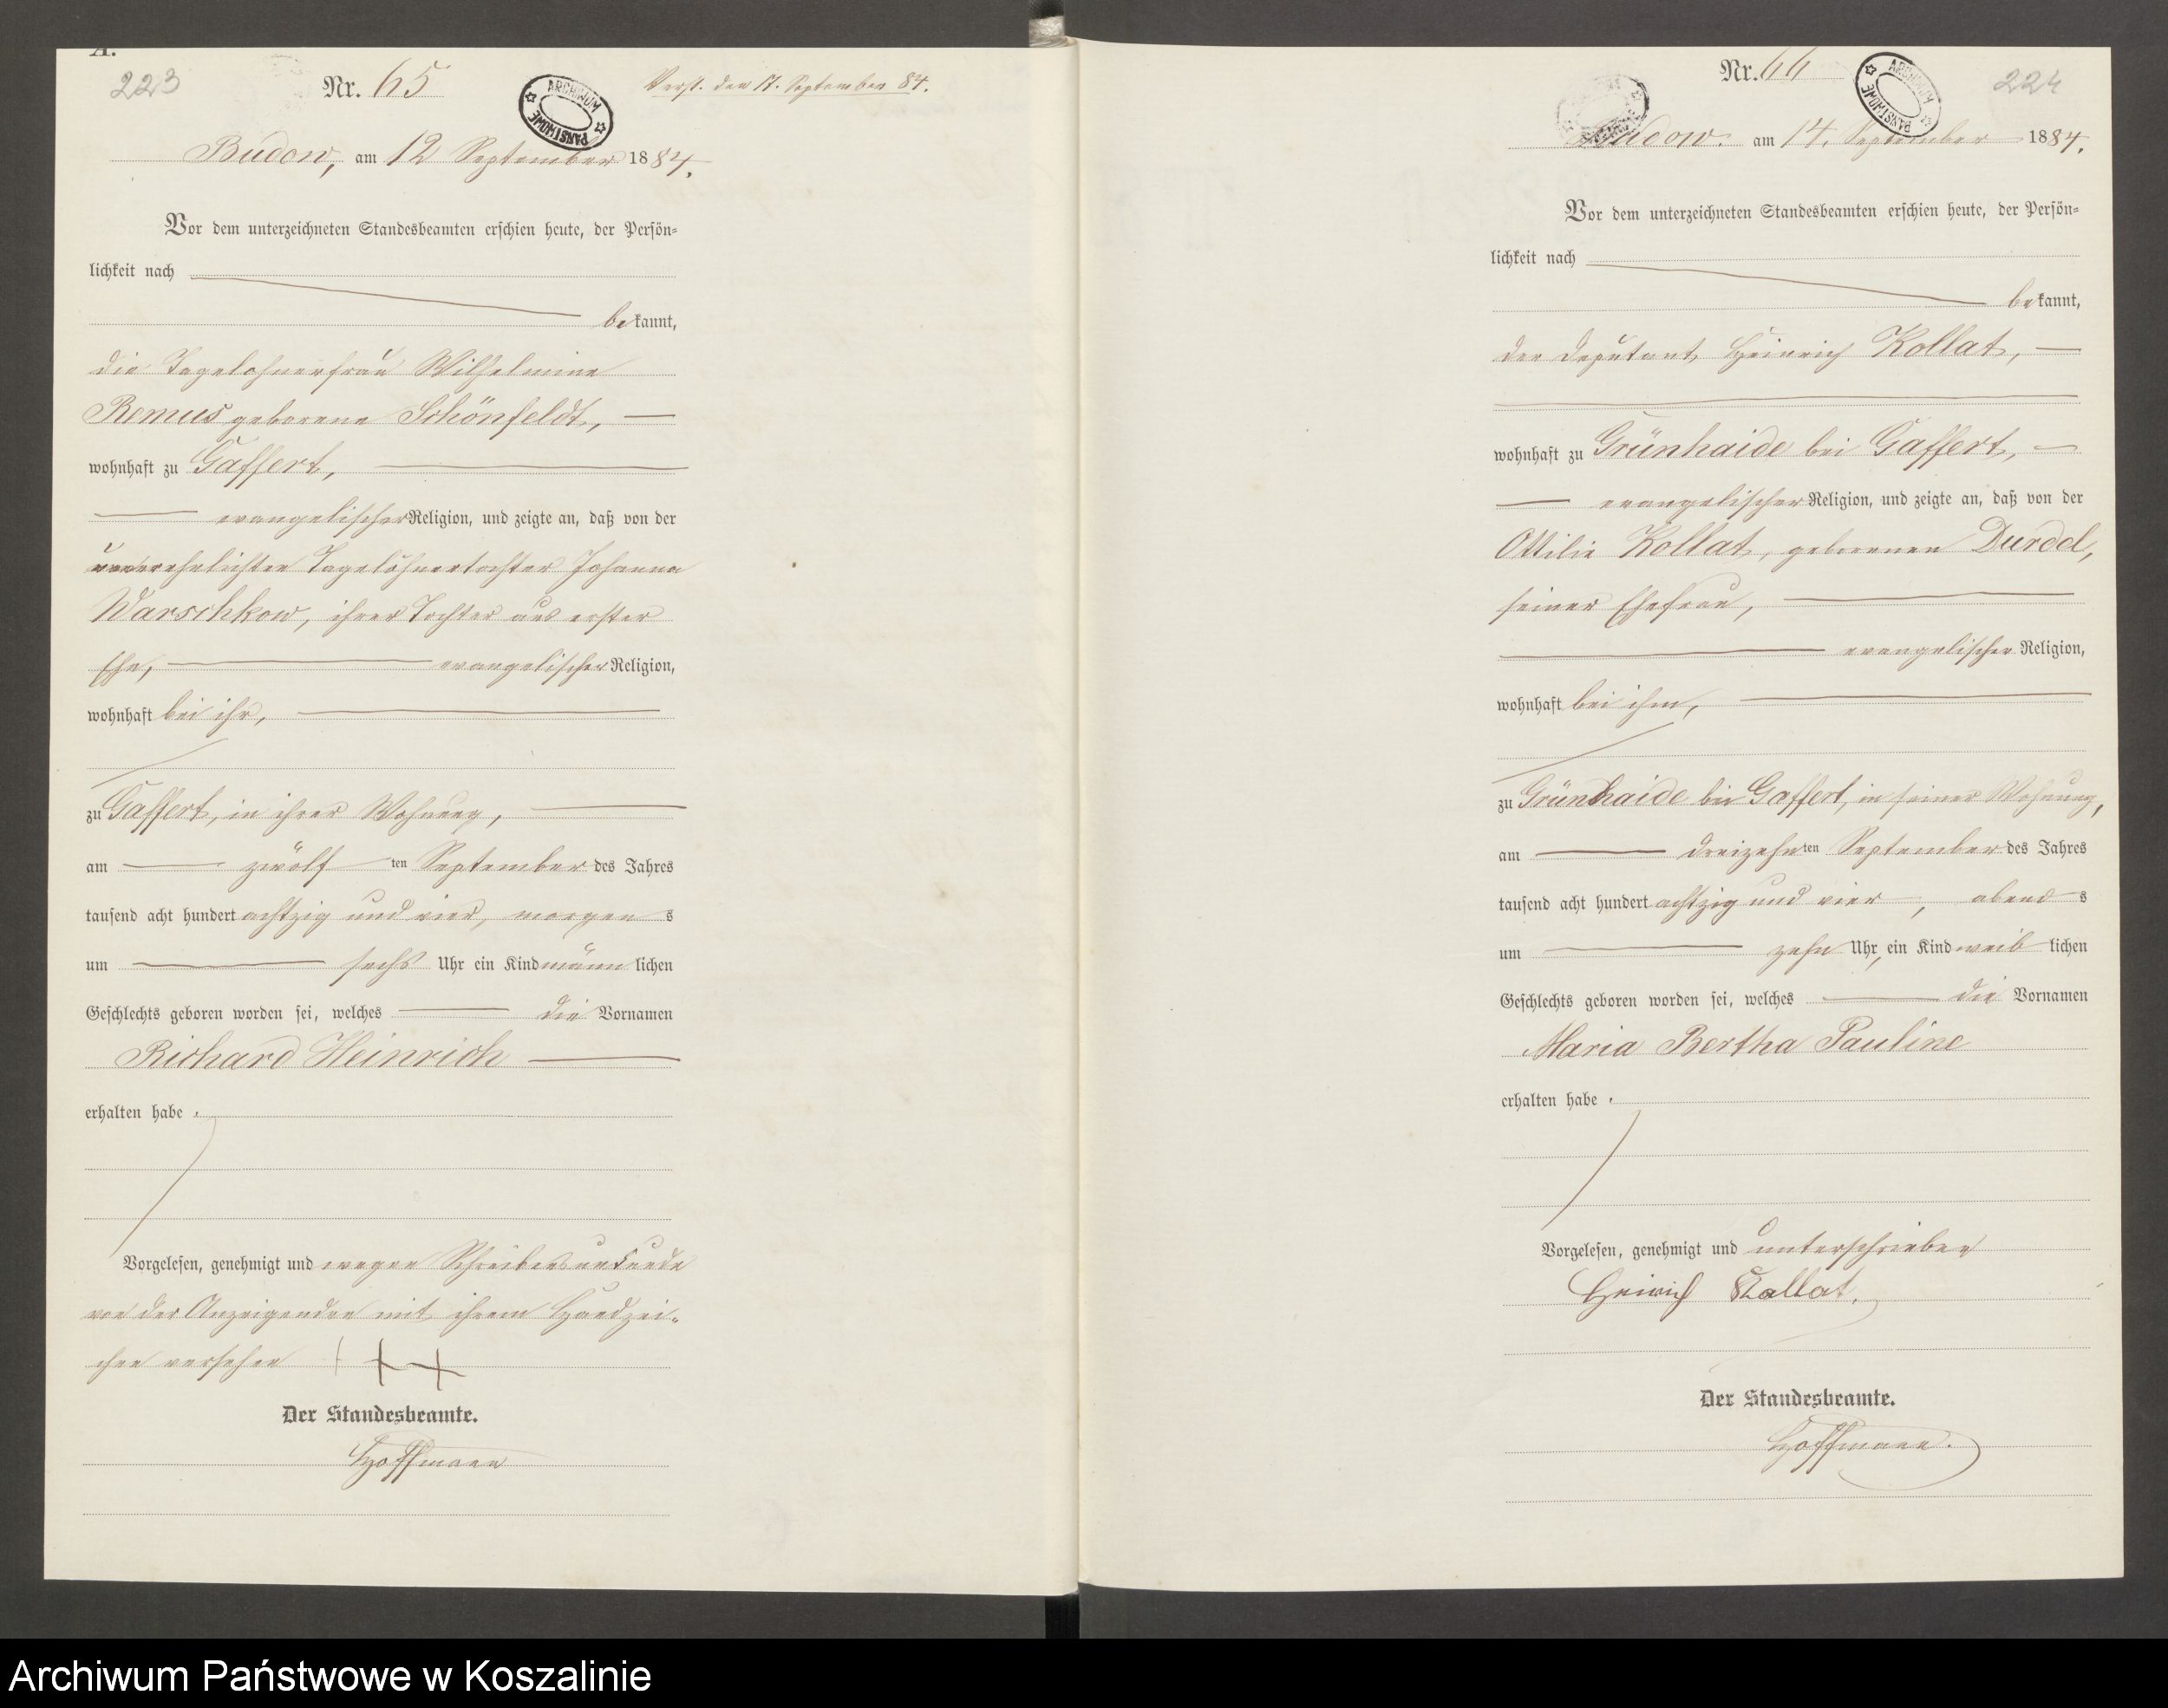 A.
223
Nr. 65
Verst. den 17. September 84.
ARCHIWUM PAŃSTWOWE
Budow, am 12 September 1884.
Vor dem unterzeichneten Standesbeamten erschien heute, der Persön-
lichkeit nach
bekannt,
die Tagelohnerfrau Wilhelmine
Remus geborene Schönfeldt,
wohnhaft zu Gaffert,
evangelischer Religion, und zeigte an, daß von der
unverehelichten Tagelöhnertochter Johanna
Warschkow, ihrer Tochter aus erster
Ehe, evangelischer Religion,
wohnhaft bei ihr,
zu Gaffert, in ihrer Wohnung,
am zwölften September des Jahres
tausend acht hundert achtzig und vier, morgens
um sechs Uhr ein Kind männlichen
Geschlechts geboren worden sei, welches die Vornamen
Richard Heinrich
erhalten habe.
Vorgelesen, genehmigt und wegen Schreibensunkunde
von der Anzeigenden mit ihrem Handzei-
chen versehen + + +
Der Standesbeamte.
Hoffmann
Nr. 66
ARCHIWUM PAŃSTWOWE
224
Budow. am 14. September 1884.
Vor dem unterzeichneten Standesbeamten erschien heute, der Persön-
lichkeit nach
bekannt,
der Deputant Heinrich Kollat,
wohnhaft zu Grünhaide bei Gaffert,
evangelischer Religion, und zeigte an, daß von der
Ottilie Kollat, geborenen Durdel,
seiner Ehefrau,
evangelischer Religion,
wohnhaft bei ihm,
zu Grünhaide bei Gaffert, in seiner Wohnung,
am dreizehnten September des Jahres
tausend acht hundert achtzig und vier, abends
um zehn Uhr, ein Kind weiblichen
Geschlechts geboren worden sei, welches die Vornamen
Maria Bertha Pauline
erhalten habe.
Vorgelesen, genehmigt und unterschrieben
Heinrich Kollat.
Der Standesbeamte.
Hoffmann.
Archiwum Państwowe w Koszalinie